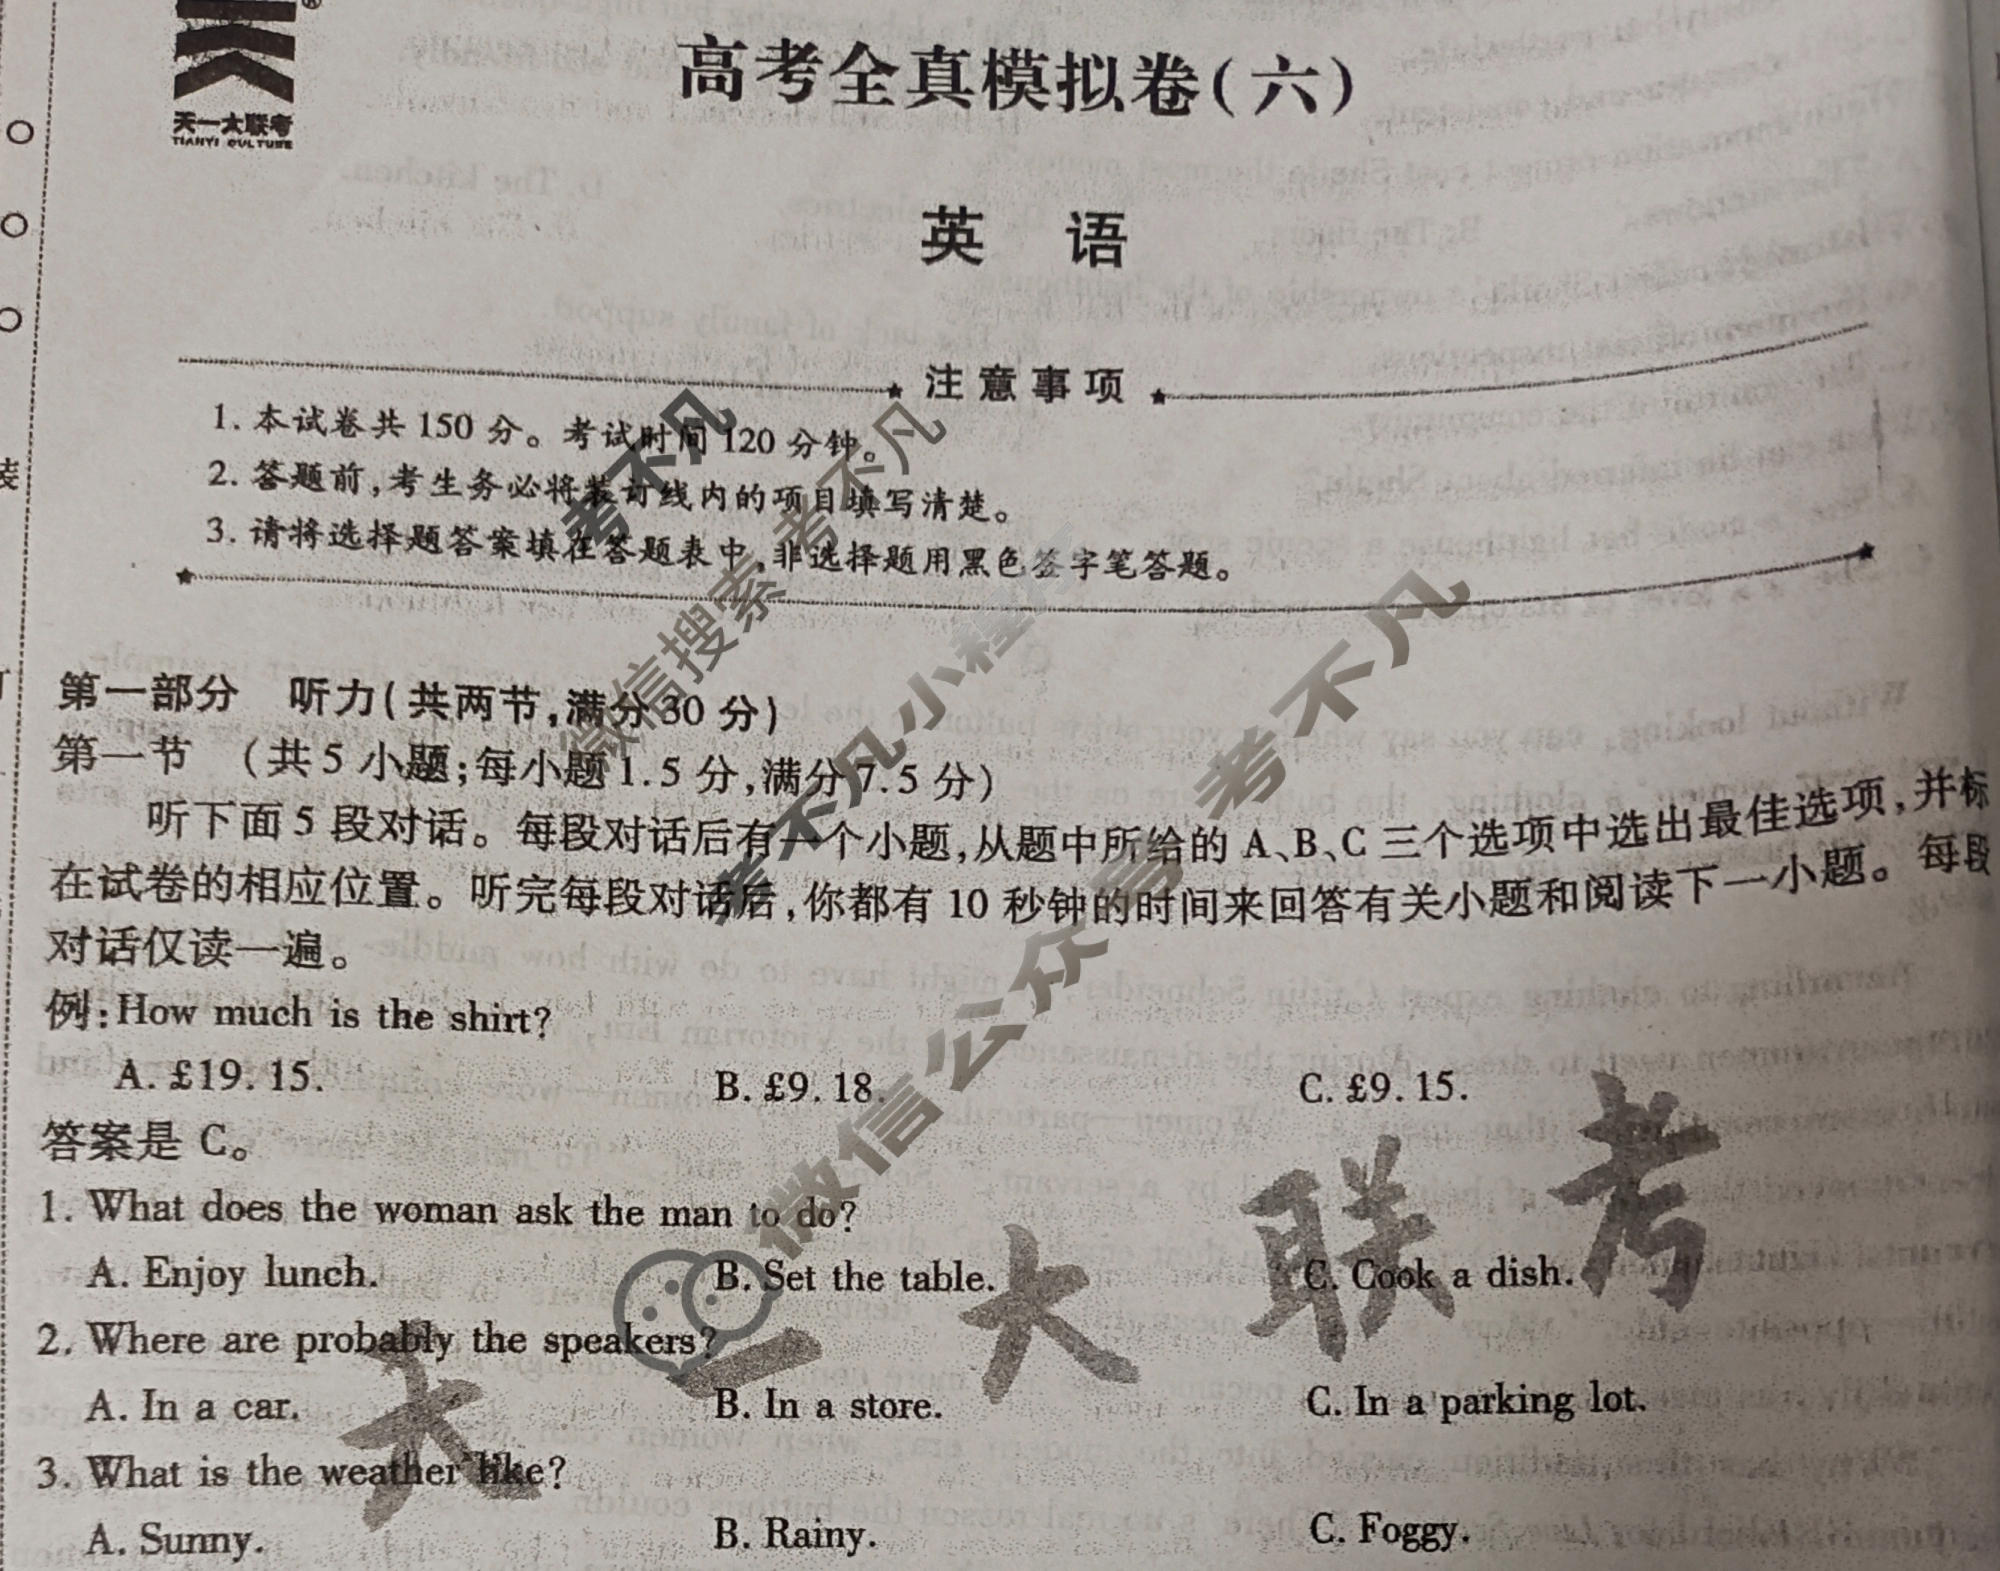 天一大联考
TIANYI CULTURE
高考全真模拟卷(六)
英 语
注意事项
1. 本试卷共 150 分。考试时间 120 分钟。
2. 答题前,考生务必将装订线内的项目填写清楚。
3. 请将选择题答案填在答题表中,非选择题用黑色签字笔答题。
第一部分 听力(共两节,满分 30 分)
第一节 (共 5 小题;每小题 1.5 分,满分 7.5 分)
听下面 5 段对话。每段对话后有一个小题,从题中所给的 A、B、C 三个选项中选出最佳选项,并标
在试卷的相应位置。听完每段对话后,你都有 10 秒钟的时间来回答有关小题和阅读下一小题。每段
对话仅读一遍。
例:How much is the shirt?
A. £19.15. B. £9.18. C. £9.15.
答案是 C。
1. What does the woman ask the man to do?
A. Enjoy lunch. B. Set the table. C. Cook a dish.
2. Where are probably the speakers?
A. In a car. B. In a store. C. In a parking lot.
3. What is the weather like?
A. Sunny. B. Rainy. C. Foggy.
考不凡
微信搜索 考不凡
考不凡小程序
微信公众号 考不凡
天一大联考